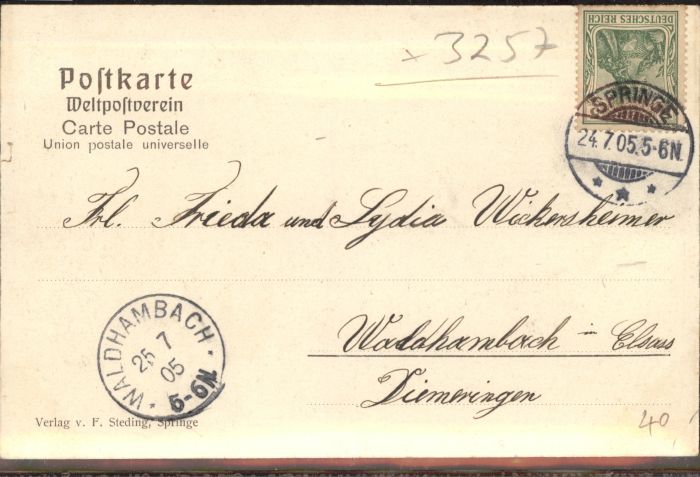 × 3257
DEUTSCHES REICH
Postkarte
Weltpostverein
Carte Postale
Union postale universelle
SPRINGE
24.7.05.5-6N.
Frl. Frieda und Lydia Wickersheimer
WALDHAMBACH
25 7
05
5-6N
Waldhambach – Elsass
Diemeringen
Verlag v. F. Steding, Springe
40